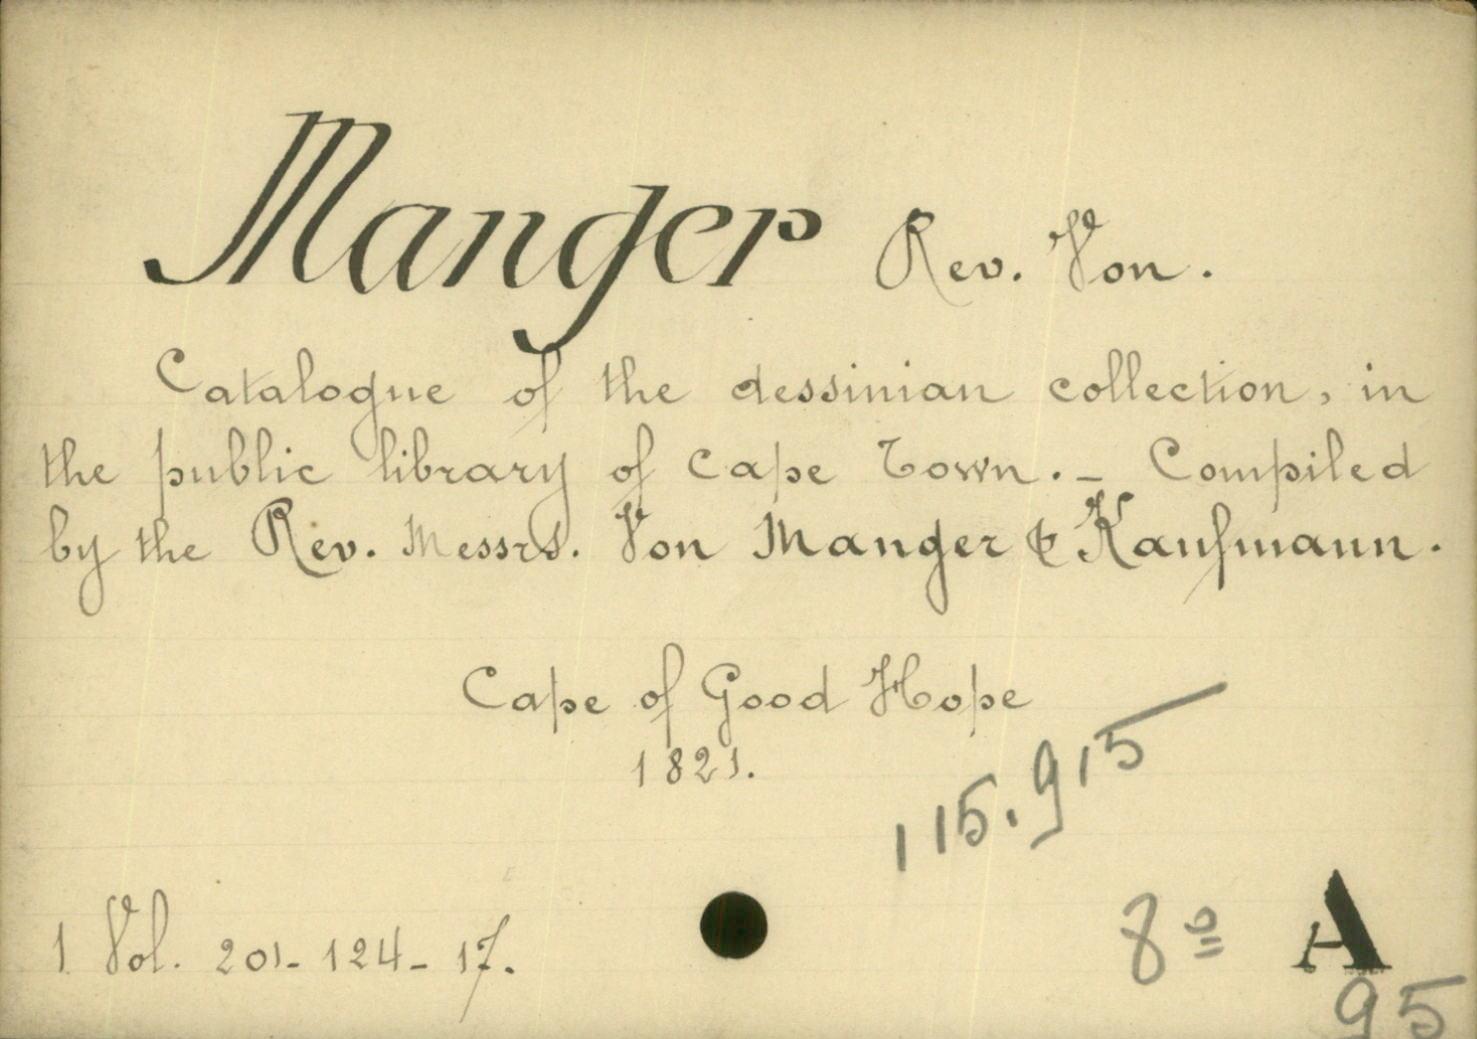 Manger Rev. Von.
Catalogue of the dessinian collection, in
the public library of Cape Town. - Compiled
by the Rev. Messrs. Von Manger & Kaufmann.
Cape of Good Hope
1821.
115.915
1 Vol. 201-124-17.
8º A
95